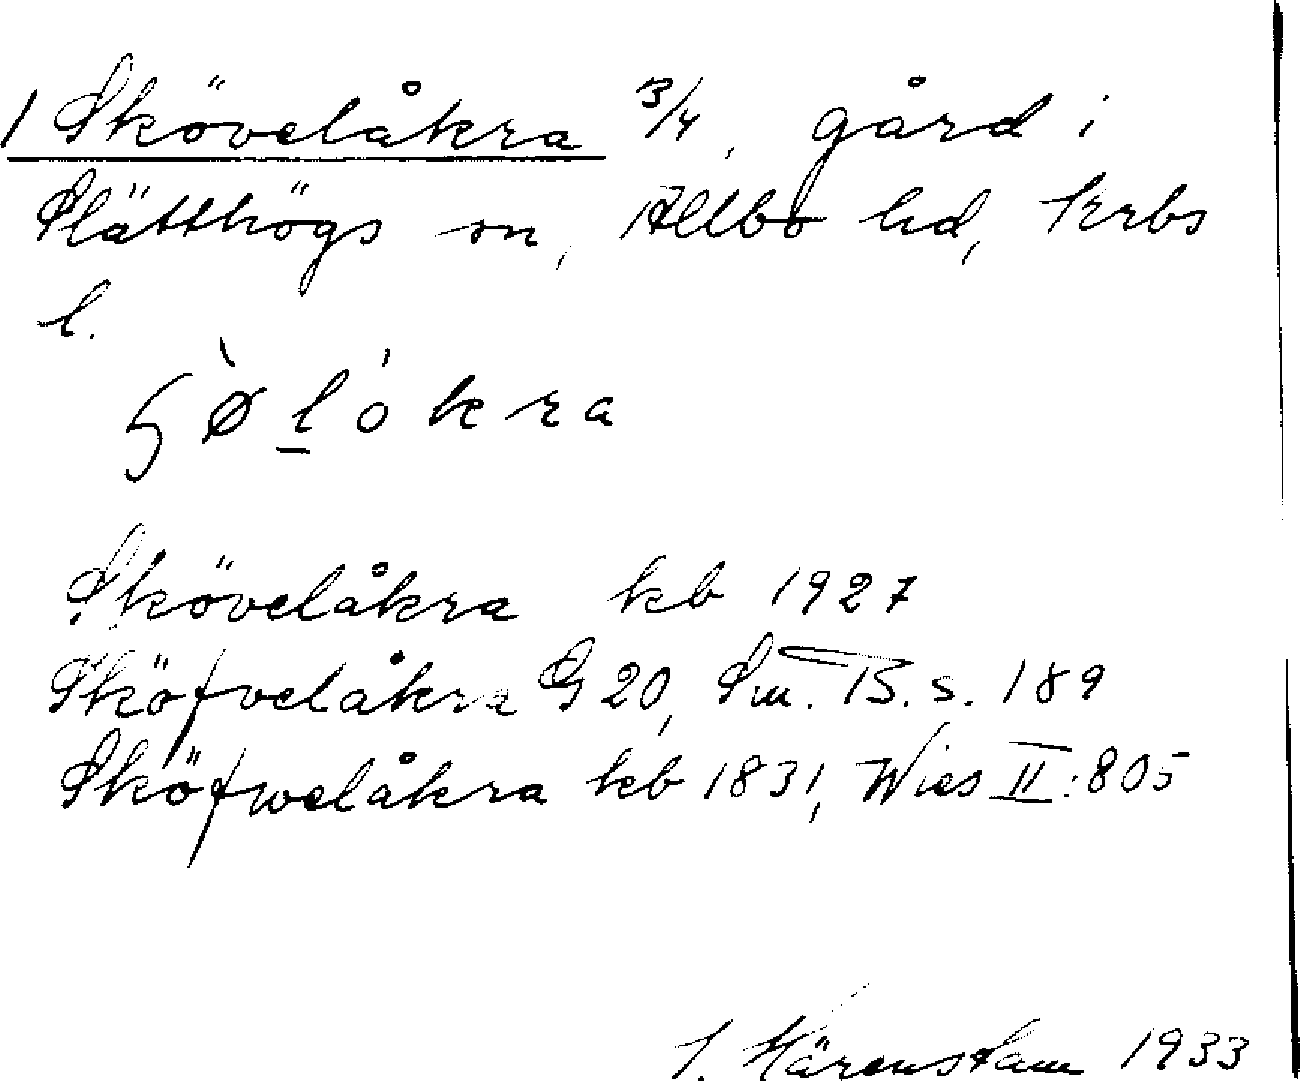 1 Skövelåkra 3/4, gård i
Slätthögs sn, Allbo hd, Krbs
l.
Skövelåkra kb 1927
Sköfvelåkra G 20, Sm. B. s. 189
Sköfwelåkra kb 1831, Wies II:805
Härenstam 1933